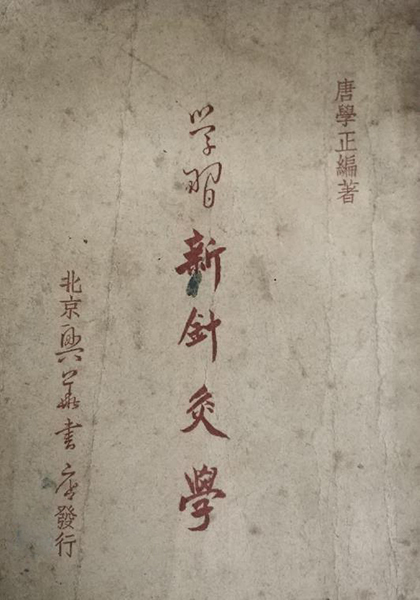 唐學正編著
学習新針灸學
北京興書店發行